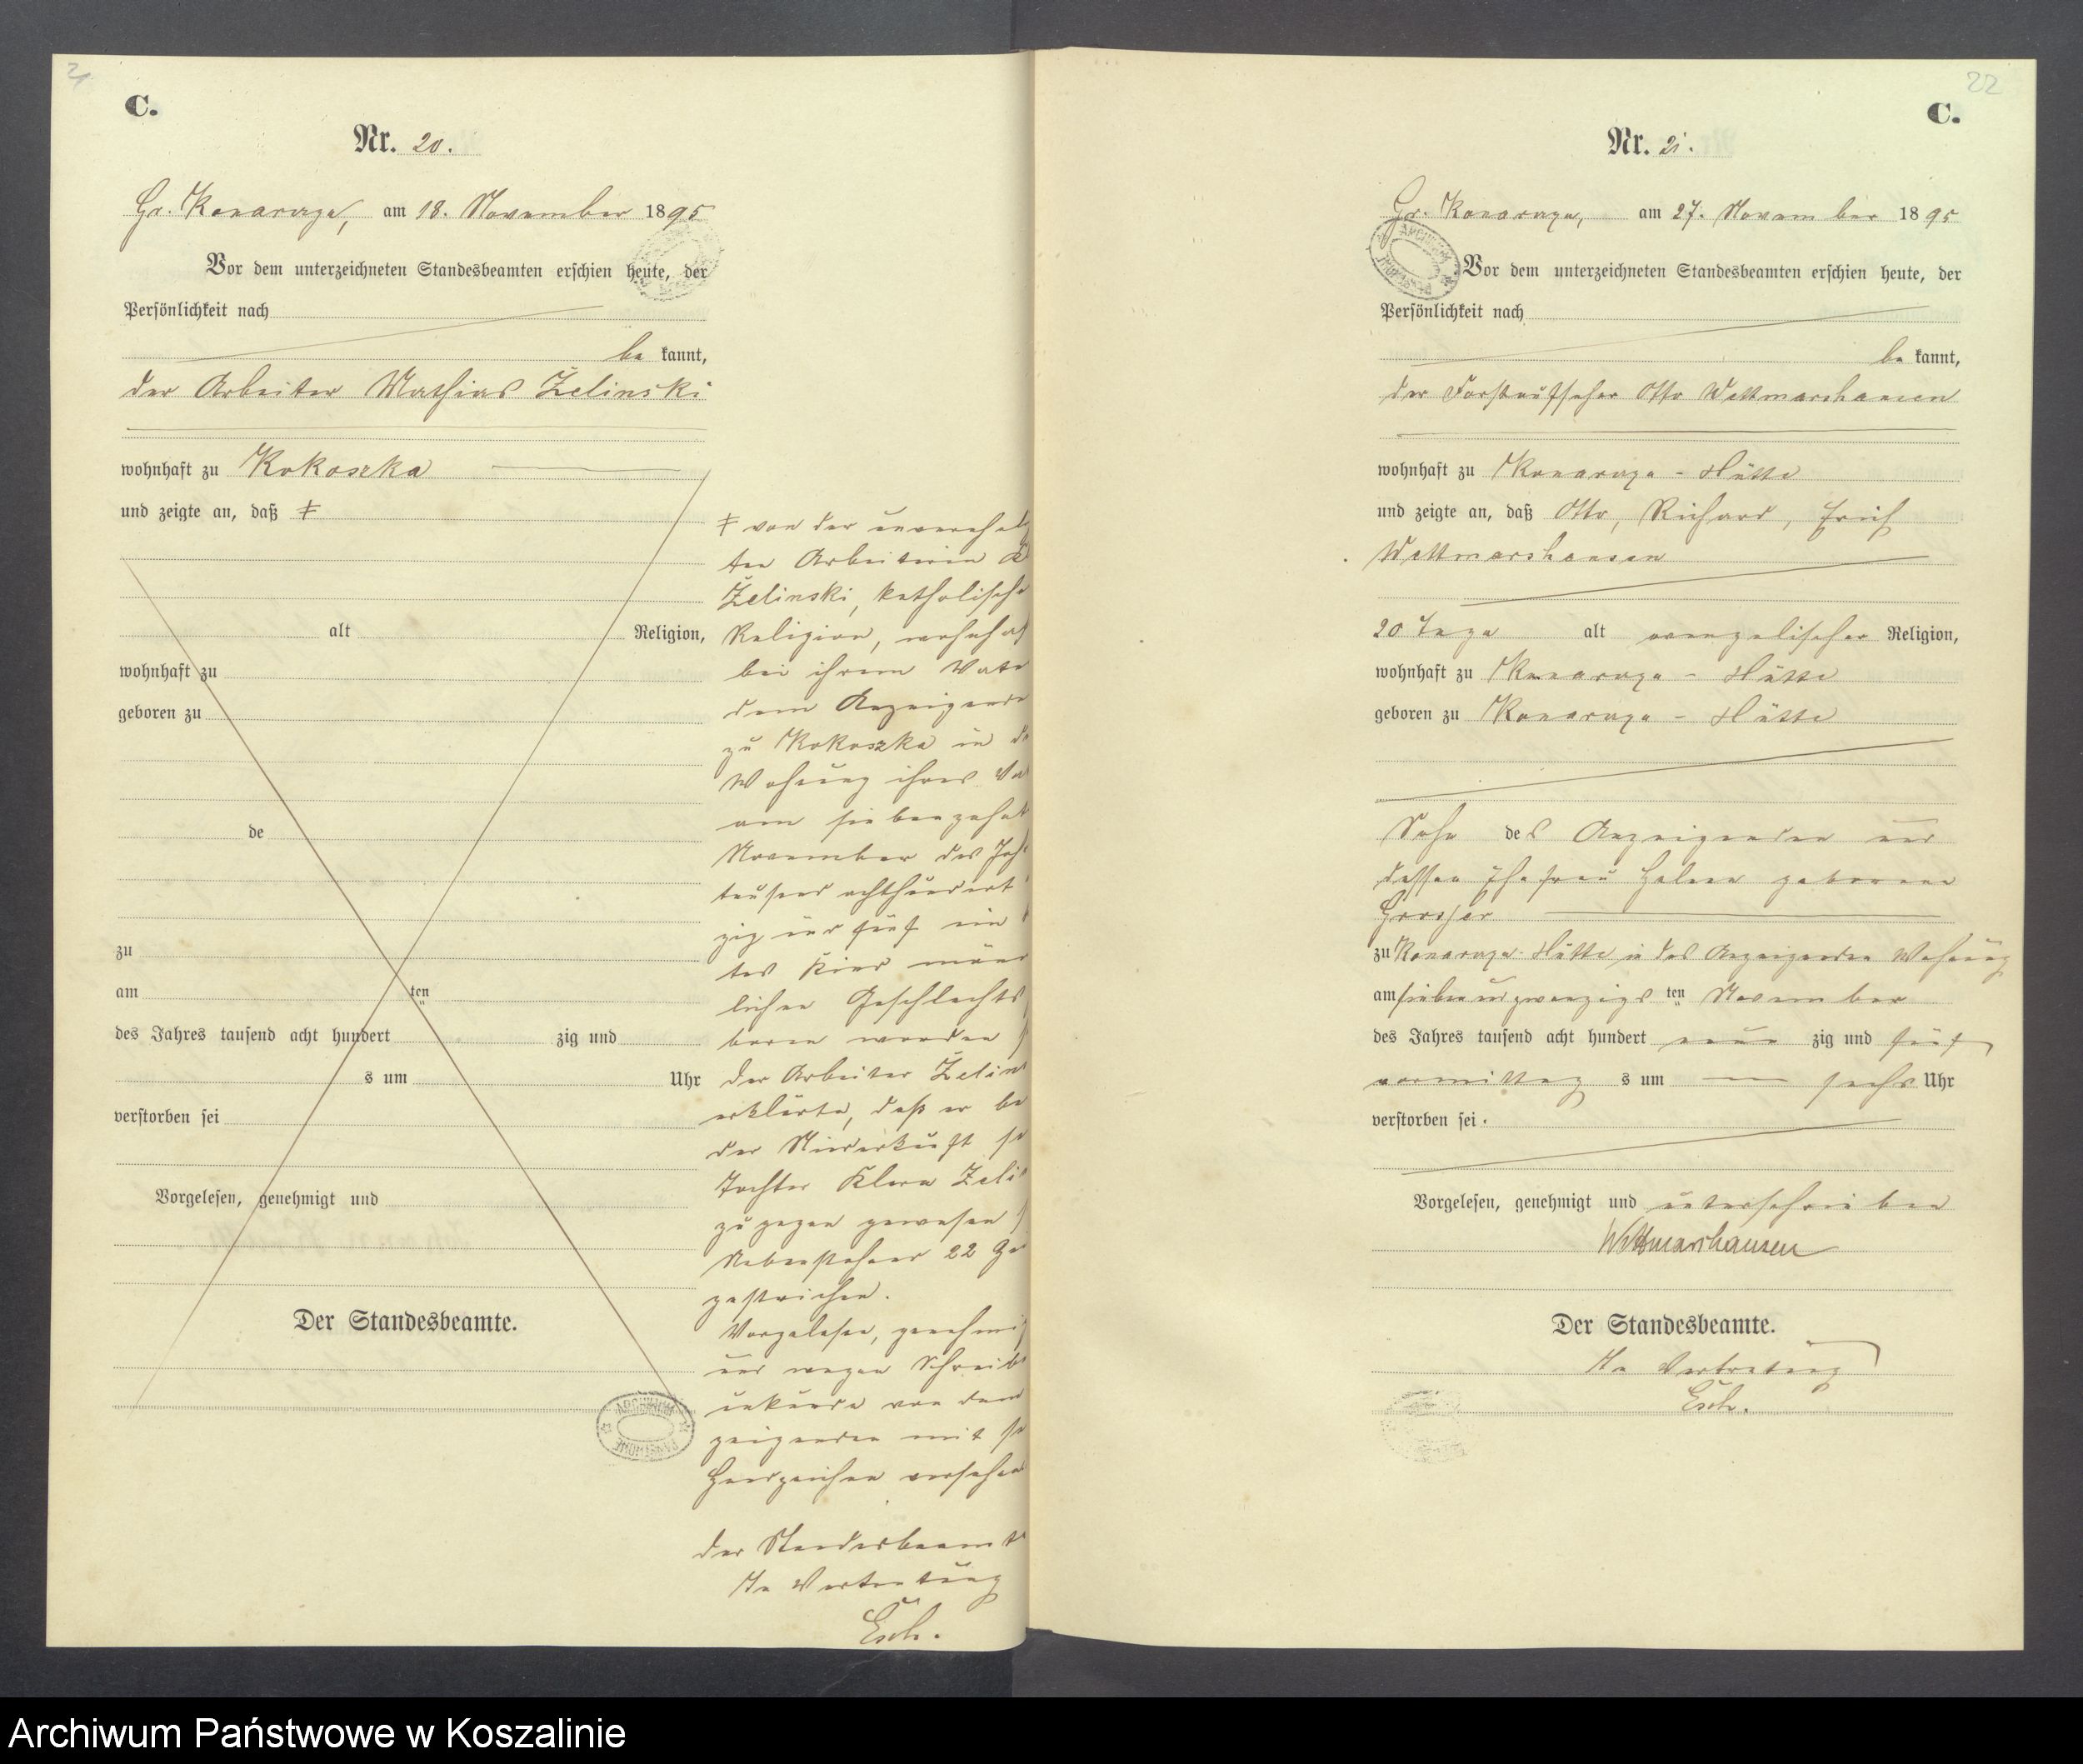 21
C.
Nr. 20.
Gr. Konarczyn, am 18. November 1895
Vor dem unterzeichneten Standesbeamten erschien heute, der
Persönlichkeit nach
be kannt,
der Arbeiter Mathias Želinski
wohnhaft zu Kokoszka
und zeigte an, daß ‡
alt Religion,
wohnhaft zu
geboren zu
de
zu
am ten
des Jahres tausend acht hundert zig und
s um Uhr
verstorben sei
Vorgelesen, genehmigt und
Der Standesbeamte.
‡ von der unverehelich
ten Arbeiterin
Želinski, katholische
Religion, wohnhaf
bei ihrem Vate
dem Anzeigende
zu Kokoszka in d
Wohnung ihres Va
am siebenzehnt
November des Jah
tausend achthundert
zig und fünf ein
tes Kind männ
lichen Geschlechts
boren worden s
Der Arbeiter Želins
erklärte, daß er be
der Niederkunft se
Tochter Klara Želi
zugegen gewesen s
Nebenstehend 22
gestrichen.
Vorgelesen, genehmig
und wegen Schreib
unkunde von dem
zeigenden mit se
Handzeichen versehen
Der Standesbeamte
In Vertretung
Esch.
22
C.
Nr. 21.
Gr. Konarczyn, am 27. November 1895
Vor dem unterzeichneten Standesbeamten erschien heute, der
Persönlichkeit nach
be kannt,
der Forstaufseher Otto Wettmarshausen
wohnhaft zu Konarczyn - Hütte
und zeigte an, daß Otto, Richard, Erich
Wettmarshausen
20 Tage alt evangelischer Religion,
wohnhaft zu Konarczyn - Hütte
geboren zu Konarczyn - Hütte
Sohn des Anzeigenden und
dessen Ehefrau Helene geborene
zu Konarczyn-Hütte in des Anzeigenden Wohnung
am siebenundzwanzigs ten November
des Jahres tausend acht hundert neun zig und fünf
vormittag s um sechs Uhr
verstorben sei.
Vorgelesen, genehmigt und unterschrieben
Wettmarshausen
Der Standesbeamte.
In Vertretung
Esch.
Archiwum Państwowe w Koszalinie